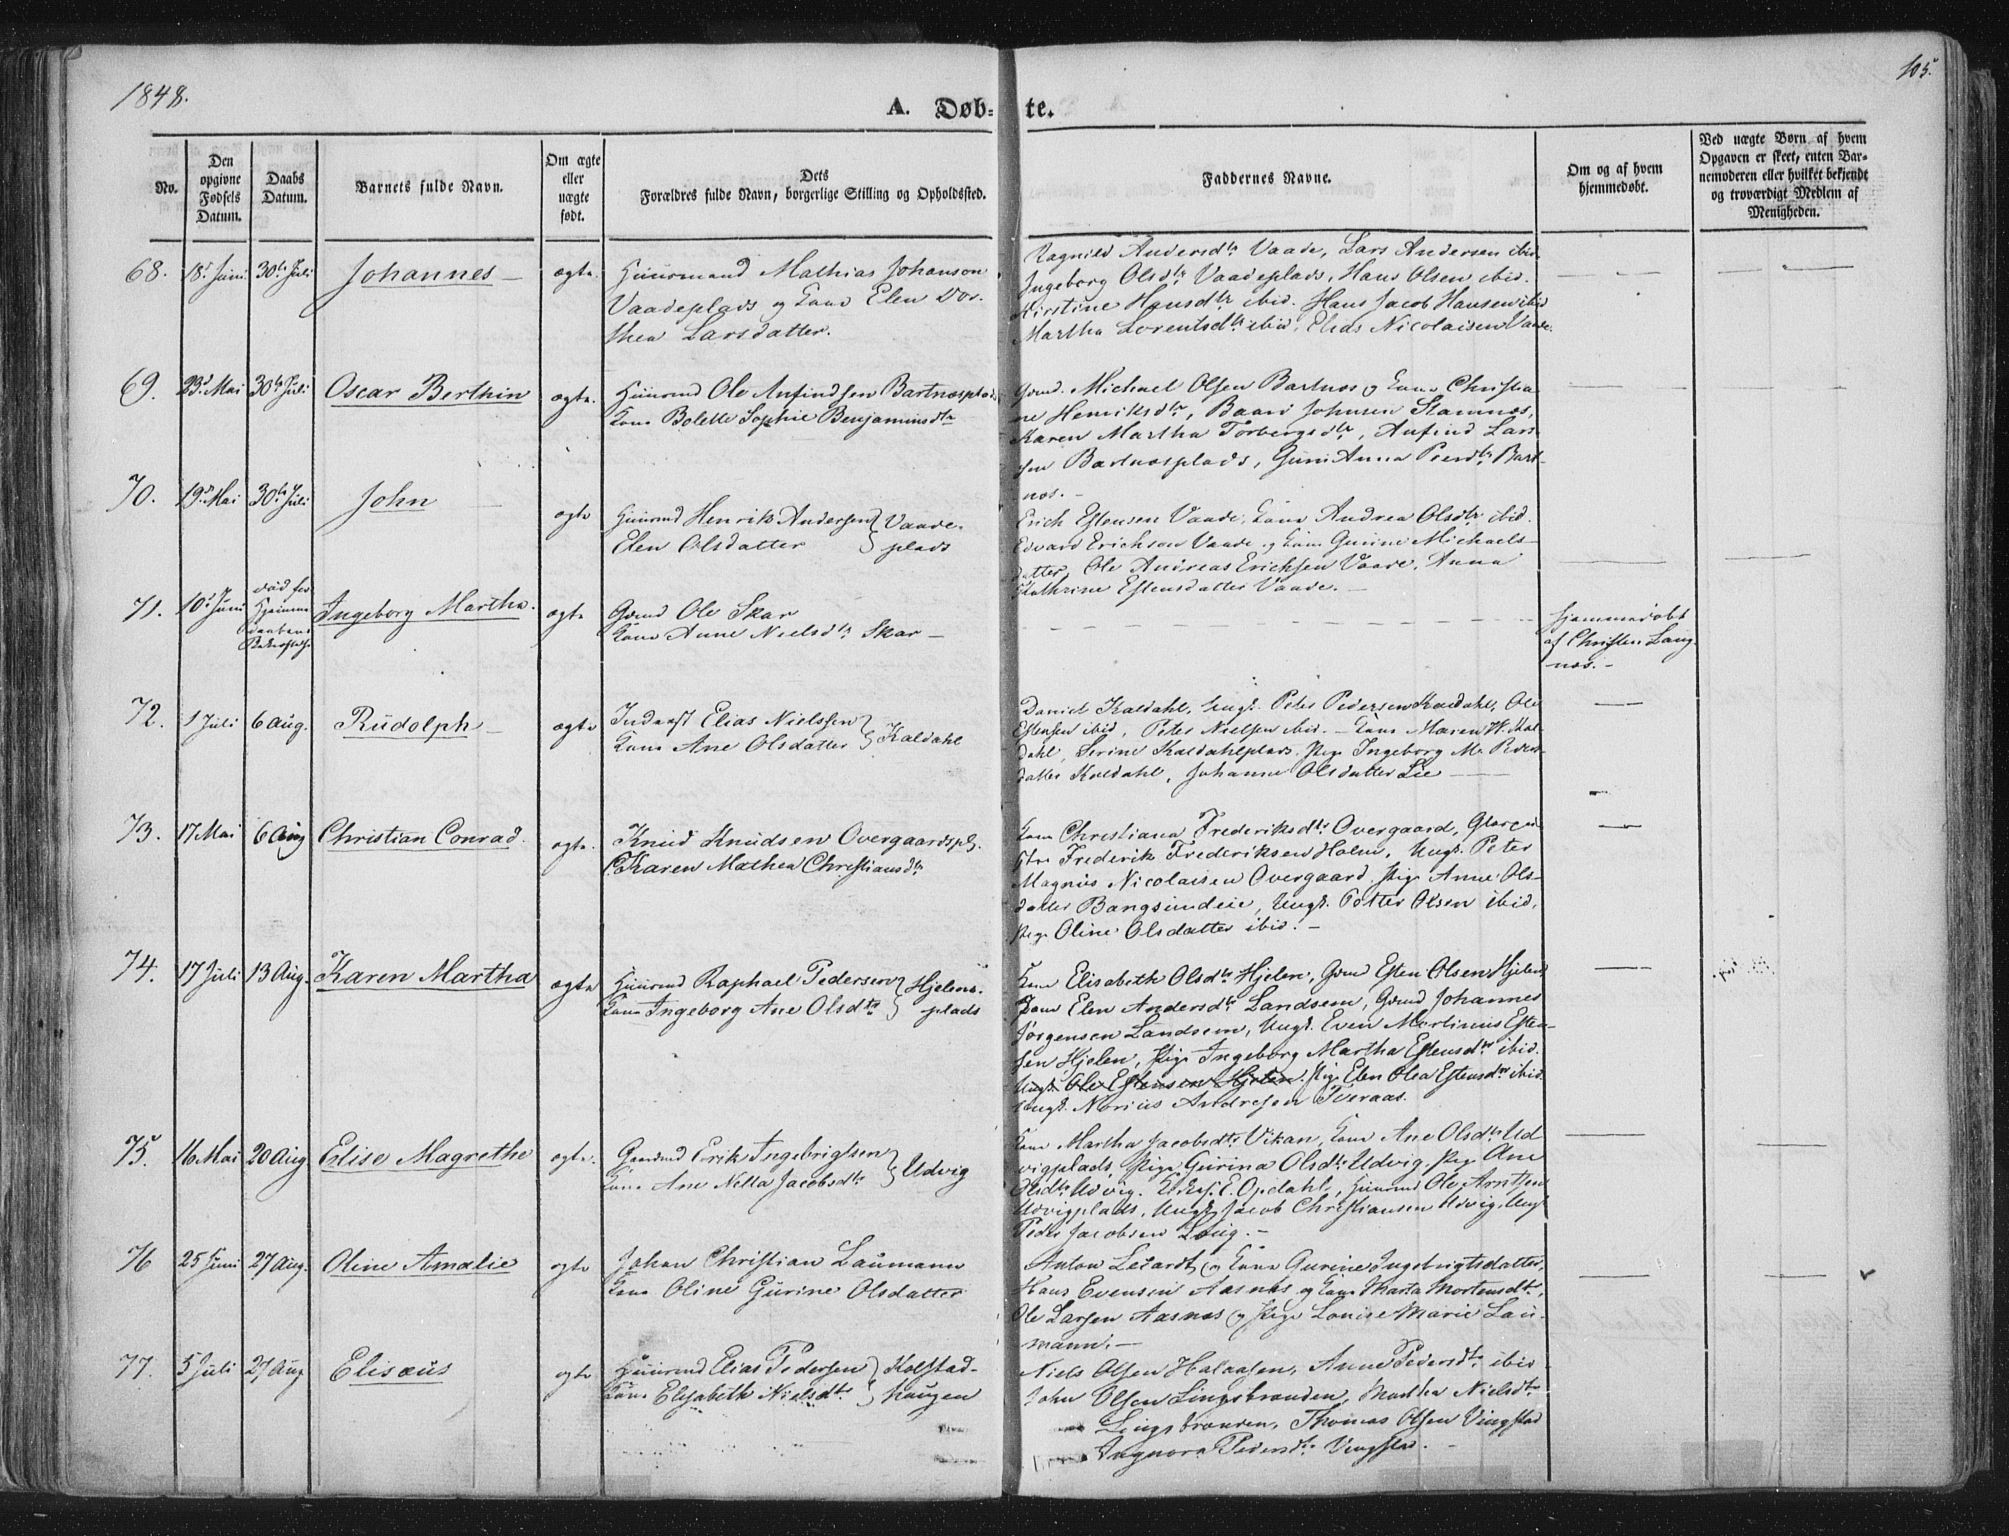 1848.
105.
A. Døb-
te.
No.
Den opgivne Fødsels Datum.
Daabs Datum.
Barnets fulde Navn.
Om ægte eller uægte født.
Dets Forældres fulde Navn, borgerlige Stilling og Opholdssted.
Faddernes Navne.
Om og af hvem hjemmedøbt.
Ved uægte Børn af hvem Opgaven er skeet, enten Barnemoderen eller hvilket bekjendt og troværdigt Medlem af Menigheden.
68. 18 Juni 30te Juli Johannes ægte. Huusmand Mathias Johanson
Vaadeplads og Kone Elen Dor-
thea Larsdatter.
Ragnild Andersdtr Vaade, Lars Andersen ibid.
Ingeborg Olsdtr Vaadeplads, Hans Olsen ibid.
Kirstine Hansdtr ibid. Hans Jacob Hansen ibid
Martha Lorentsdtr ibid, Elias Nicolaisen Vaade.
69. 23 Mai 30te Juli Oscar Berthin ægte. Huusmd Ole Anfindsen Bartnæsplads
Kone Bolette Sophie Benjaminsdtr
Gmd. Michael Olsen Bartnæs og Kone Christia-
ne Henriksdtr, Baard Johnsen Stamnes,
Karen Martha Torbergsdtr, Anfind Lar-
sen Bartnæsplads, Guru Anna Peersdtr Bart-
næs.
70. 19 Mai 30te Juli John ægte Huusmd Henrik Andersen
Elen Olsdatter } Vaade-
plads
Erich Estensen Vaade, Kone Andrea Olsdtr ibid.
Edvard Erichsen Vaade og Kone Gurine Michaels-
datter, Ole Andreas Erichsen Vaade, Anna
Kathrine Estensdatter Vaade.
71. 10 Juni død før
Hjemme-
daabens
Bekræftelse
Ingeborg Martha. ægte Gmd Ole Skar
Kone Anne Nielsdtr Skar
hjemmedøbt
af Christen Lang-
næs.
72. 1 Juli 6 Aug. Rudolph ægte Inderst Elias Nielssen
Kone Ane Olsdatter } Kaldahl
Daniel Kaldahl, Ungk. Peter Pedersen Kaldahl, Ole
Estensen ibid, Peter Nielsen ibid. Kone Maren W. Kal-
dahl, Serine Kaldahlplads, Pige Ingeborg M. Peders-
datter Kaldahl, Johanna Olsdatter Lie
73. 17 Mai 6 Aug Christian Conrad. ægte. Knud Knudsen Overgaardspl.
Karen Mathea Christiansdtr
Kone Christiana Frederiksdtr Overgaard,
Frederik Frederiksen Holm, Ungk. Peter
Magnus Nicolaisen Overgaard. Pige Anne Ols-
datter Bangsundeie, Ungk. Petter Olsen ibid,
Pige Oline Olsdatter ibid.
74. 17 Juli 13 Aug. Karen Martha ægte Huusmd Raphael Pedersen
Kone Ingeborg Ane Olsdtr } Hjelens-
plads
Kone Elisabeth Olsdtr Hjelen, Gmd Esten Olsen Hjelen
Kone Elen Andersdtr Landsem, Gmd Johannes
Jørgensen Landsem, Ungk. Even Martinus Esten-
sen Hjelen, Pige Ingeborg Martha Estensdtr ibid.
Ungk. Ole Estensen Hjelen. Pige Elen Olea Estensdtr ibid.
Ungk. Norius Andresen Tveraas.
75. 16 Mai 20 Aug Elise Magrethe ægte. Gaardmd Erik Ingebrigtsen
Kone Ane Nella Jacobsdtr } Udvig
Kone Martha Jacobsdtr Vikan, Kone Ane Olsdtr Ud-
vigplads, Pige Gurina Olsdtr Udvig. Pige Ane
Olsdtr Udvig. E. Opdahl, Huusmd Ole Arntsen
Udvigplads, Ungk. Jacob Christiansen Udvig, Ungk
Peder Jacobsen Laug.
76 25 Juni 27 Aug. Oline Amalie ægte Johan Christian Laumann
Kone Oline Gurine Olsdatter
Anton Lezardt og Kone Gurine Ingebrigtsdatter,
Hans Evensen Aasnæs og Kone Marta Mortensdtr,
Ole Larsen Aasnæs og Pige Louise Marie Lau-
mann.
77. 5 Juli 27 Aug Elisæus ægte Huusmd Elias Pedersen
Kone Elisabeth Nielsdtr } Kolstad-
haugen
Niels Olsen Halaasen, Anne Pedersdtr ibid
John Olsen Lingsbranden, Martha Nielsdtr
Lingsbranden, Thomas Olsen Vingstad
Ingnora Pedersdtr Vingstad.